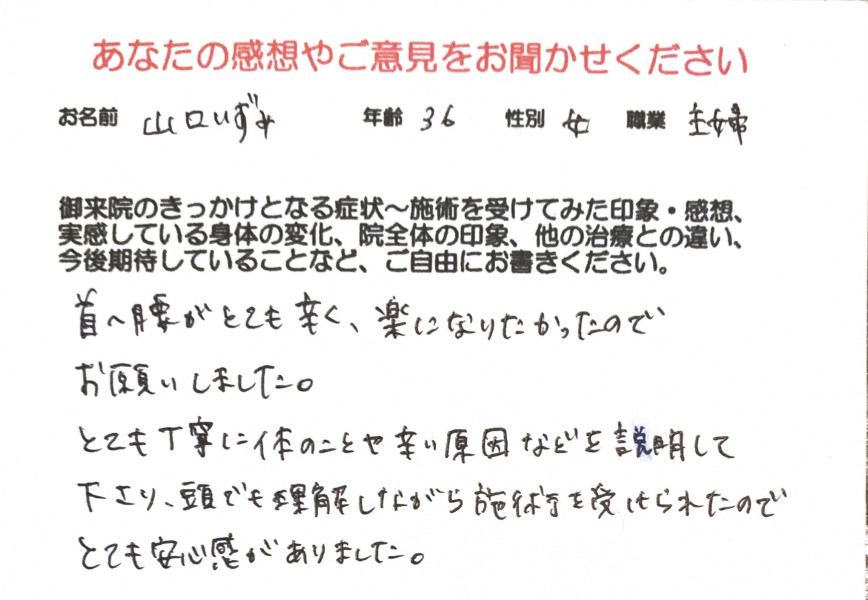 あなたの感想やご意見をお聞かせください
お名前 山口いずみ 年齢 36 性別 女 職業 主婦
御来院のきっかけとなる症状～施術を受けてみた印象・感想、
実感している身体の変化、院全体の印象、他の治療との違い、
今後期待していることなど、ご自由にお書きください。
首～腰がとても辛く、楽になりたかったので
お願いしました。
とても丁寧に体のことや辛い原因などを説明して
下さり、頭でも理解しながら施術を受けられたので
とても安心感がありました。